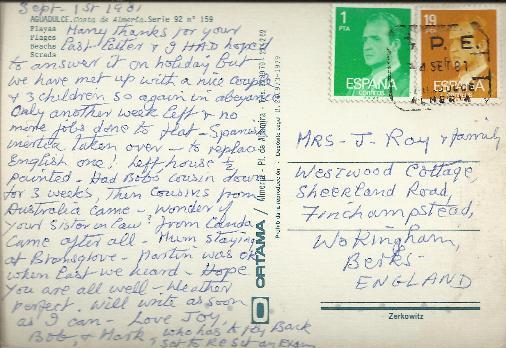 Sept - 1st 1981
AGUADULCE. Costa de Almeria. Serie 92 nº 159
Playas
Plages
Beachs
Strads
Many thanks for your
last letter & I HAD hoped
to answer it on holiday but
we have met up with a nice couple
& 3 children so again in abeyance
Only another week left & no
more jobs done to flat - Spanish
inertia taken over - to replace
English one! Left house to
painted - Had Bobs cousin down
for 3 weeks, Then cousins from
Australia came - wonder if
your Sister in law from Canada
came after all - Mum staying
at Bromsgrove - Martin was ok
when last we heard - Hope
you are all well - Weather
perfect. Will write as soon
as I can - Love Joy,
Bob, & Mark, who has to fly back
to Re Sit an Exam
ORTAMA / Almeria
Depósito legal
1 PTA
ESPAÑA
correos
19
ESPAÑA
P. E.
SET 81
ALMERIA
MRS - J. Roy & Family
Westwood Cottage,
Sheerland Road,
Finchampstead,
Wokingham,
Berks -
ENGLAND
Zerkowitz